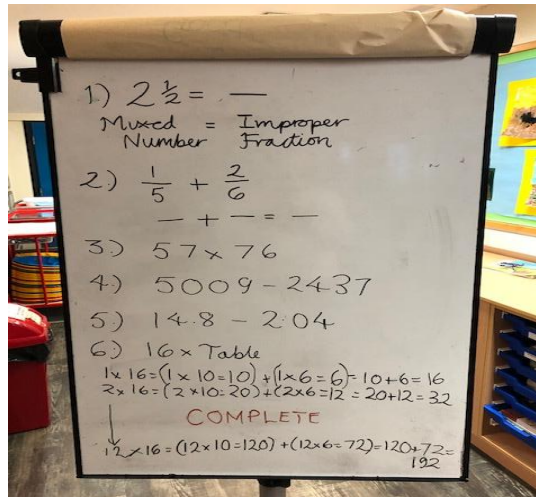 1) 2 ½ = —
Mixed = Improper
Number Fraction
2.) 1/5 + 2/6
— + — = —
3.) 57 x 76
4.) 5009 - 2437
5.) 14.8 - 2.04
6.) 16 x Table
1x 16=(1x 10=10)+(1x6=6)=10+6=16
2x 16=(2x10=20)+(2x6=12=20+12=32
COMPLETE
12x16=(12x10=120)+(12x6=72)=120+72=
192